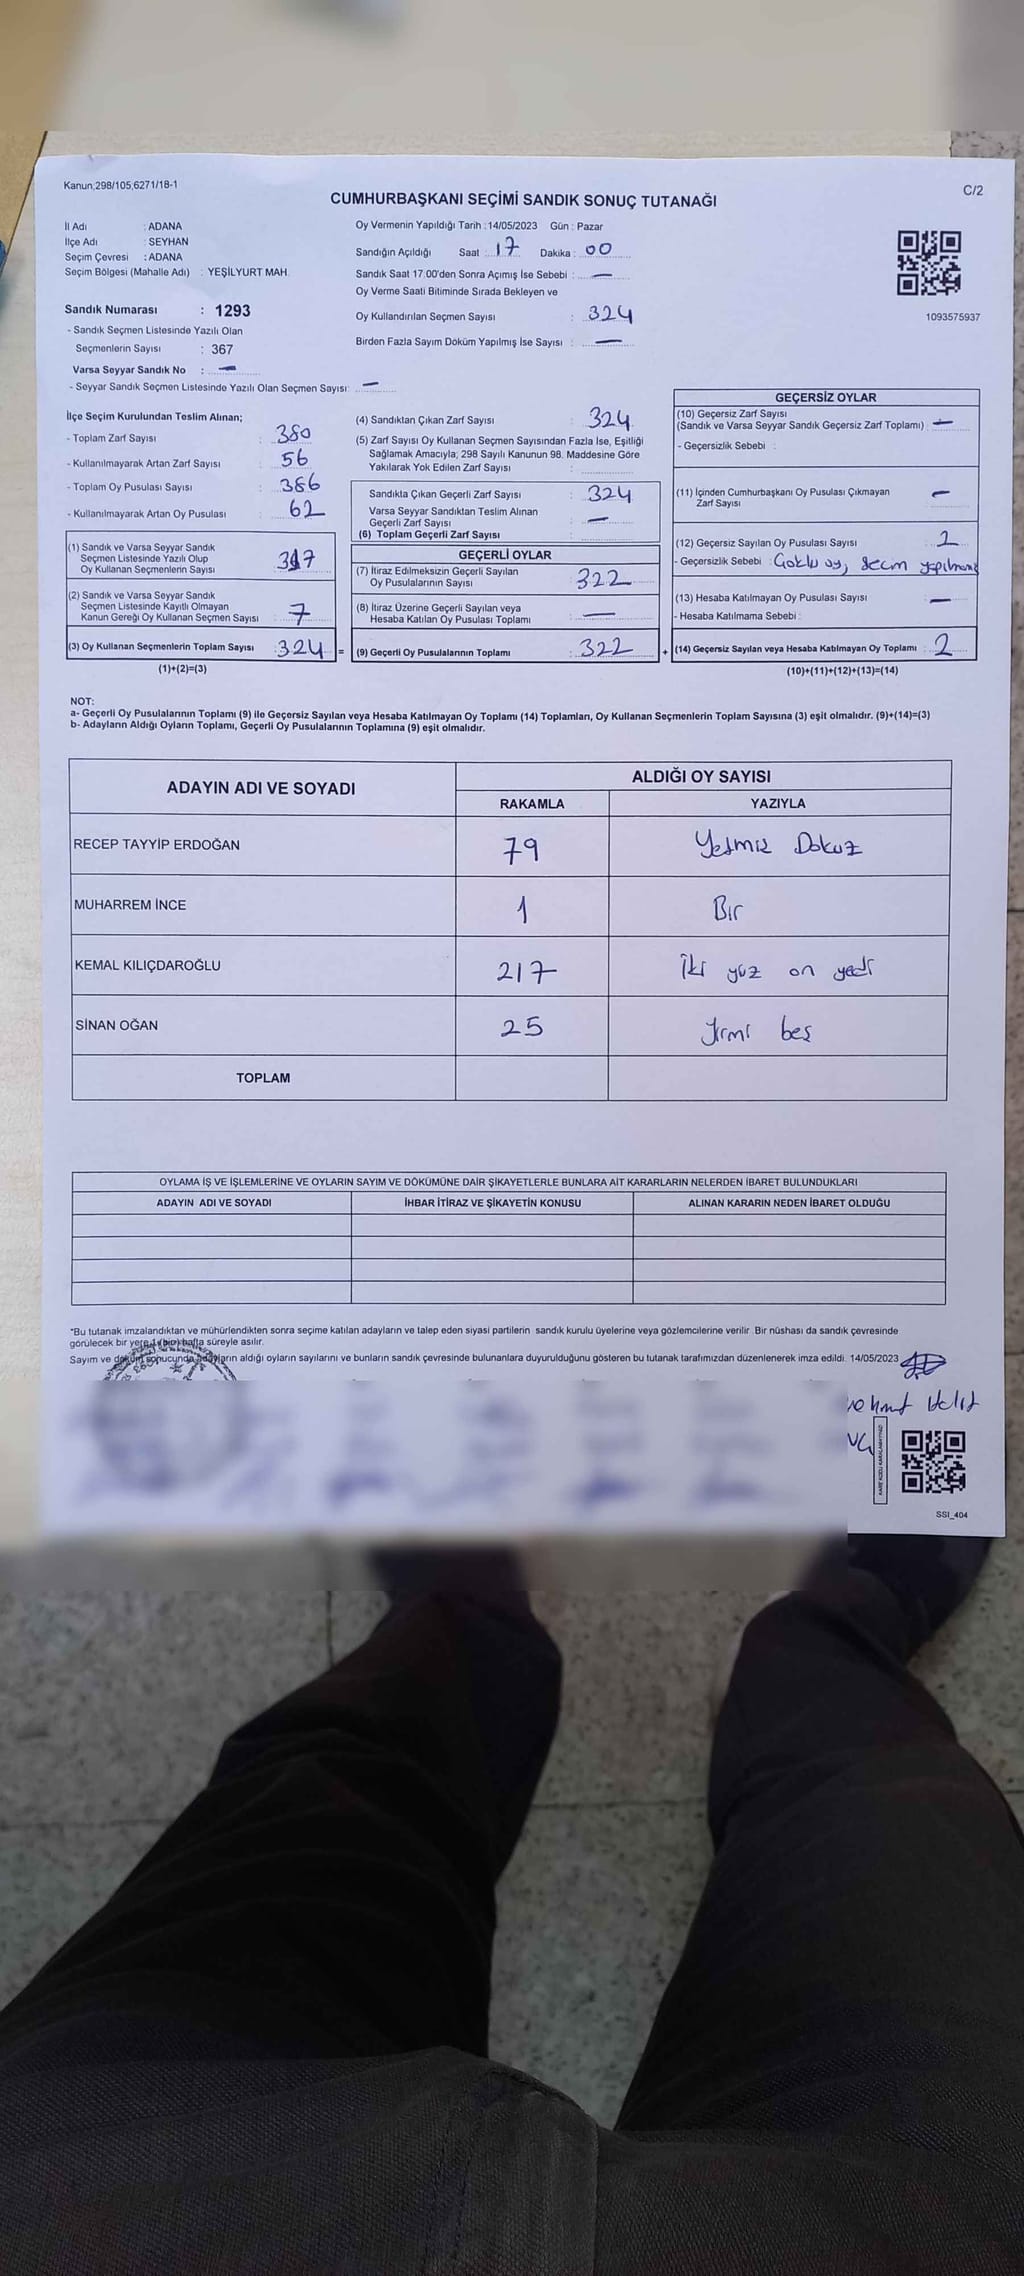 Kanun;298/105;6271/18-1
C/2
CUMHURBAŞKANI SEÇİMİ SANDIK SONUÇ TUTANAĞI
İl Adı : ADANA
İlçe Adı : SEYHAN
Seçim Çevresi : ADANA
Seçim Bölgesi (Mahalle Adı) : YEŞİLYURT MAH.
Sandık Numarası : 1293
- Sandık Seçmen Listesinde Yazılı Olan
Seçmenlerin Sayısı : 367
Varsa Seyyar Sandık No : —
- Seyyar Sandık Seçmen Listesinde Yazılı Olan Seçmen Sayısı: —
Oy Vermenin Yapıldığı Tarih :14/05/2023 Gün : Pazar
Sandığın Açıldığı Saat : 17 Dakika : 00
Sandık Saat 17.00'den Sonra Açımış İse Sebebi : —
Oy Verme Saati Bitiminde Sırada Bekleyen ve
Oy Kullandırılan Seçmen Sayısı : 324
Birden Fazla Sayım Döküm Yapılmış İse Sayısı : —
1093575937
İlçe Seçim Kurulundan Teslim Alınan;
- Toplam Zarf Sayısı : 380
- Kullanılmayarak Artan Zarf Sayısı : 56
- Toplam Oy Pusulası Sayısı : 386
- Kullanılmayarak Artan Oy Pusulası : 62
(1) Sandık ve Varsa Seyyar Sandık
Seçmen Listesinde Yazılı Olup
Oy Kullanan Seçmenlerin Sayısı 317
(2) Sandık ve Varsa Seyyar Sandık
Seçmen Listesinde Kayıtlı Olmayan
Kanun Gereği Oy Kullanan Seçmen Sayısı : 7
(3) Oy Kullanan Seçmenlerin Toplam Sayısı : 324 =
(1)+(2)=(3)
(4) Sandıktan Çıkan Zarf Sayısı : 324
(5) Zarf Sayısı Oy Kullanan Seçmen Sayısından Fazla İse, Eşitliği
Sağlamak Amacıyla; 298 Sayılı Kanunun 98. Maddesine Göre
Yakılarak Yok Edilen Zarf Sayısı :
Sandıkta Çıkan Geçerli Zarf Sayısı : 324
Varsa Seyyar Sandıktan Teslim Alınan
Geçerli Zarf Sayısı : —
(6) Toplam Geçerli Zarf Sayısı
GEÇERLİ OYLAR
(7) İtiraz Edilmeksizin Geçerli Sayılan
Oy Pusulalarının Sayısı : 322
(8) İtiraz Üzerine Geçerli Sayılan veya
Hesaba Katılan Oy Pusulası Toplamı : —
(9) Geçerli Oy Pusulalarının Toplamı : 322 +
GEÇERSİZ OYLAR
(10) Geçersiz Zarf Sayısı
(Sandık ve Varsa Seyyar Sandık Geçersiz Zarf Toplamı) : —
- Geçersizlik Sebebi :
(11) İçinden Cumhurbaşkanı Oy Pusulası Çıkmayan
Zarf Sayısı —
(12) Geçersiz Sayılan Oy Pusulası Sayısı : 2
- Geçersizlik Sebebi : Çoklu oy, Seçim
(13) Hesaba Katılmayan Oy Pusulası Sayısı : —
- Hesaba Katılmama Sebebi :
(14) Geçersiz Sayılan veya Hesaba Katılmayan Oy Toplamı : 2
(10)+(11)+(12)+(13)=(14)
NOT:
a- Geçerli Oy Pusulalarının Toplamı (9) ile Geçersiz Sayılan veya Hesaba Katılmayan Oy Toplamı (14) Toplamları, Oy Kullanan Seçmenlerin Toplam Sayısına (3) eşit olmalıdır. (9)+(14)=(3)
b- Adayların Aldığı Oyların Toplamı, Geçerli Oy Pusulalarının Toplamına (9) eşit olmalıdır.
ADAYIN ADI VE SOYADI
ALDIĞI OY SAYISI
RAKAMLA YAZIYLA
RECEP TAYYİP ERDOĞAN 79 Yetmiş Dokuz
MUHARREM İNCE 1 Bir
KEMAL KILIÇDAROĞLU 217 İki yüz on yedi
SİNAN OĞAN 25 Yirmi beş
TOPLAM
OYLAMA İŞ VE İŞLEMLERİNE VE OYLARIN SAYIM VE DÖKÜMÜNE DAİR ŞİKAYETLERLE BUNLARA AİT KARARLARIN NELERDEN İBARET BULUNDUKLARI
ADAYIN ADI VE SOYADI İHBAR İTİRAZ VE ŞİKAYETİN KONUSU ALINAN KARARIN NEDEN İBARET OLDUĞU
*Bu tutanak imzalandıktan ve mühürlendikten sonra seçime katılan adayların ve talep eden siyasi partilerin sandık kurulu üyelerine veya gözlemcilerine verilir. Bir nüshası da sandık çevresinde
görülecek bir yere 1 (bir) hafta süreyle asılır.
Sayım ve döküm sonucunda adayların aldığı oyların sayılarını ve bunların sandık çevresinde bulunanlara duyurulduğunu gösteren bu tutanak tarafımızdan düzenlenerek imza edildi. 14/05/2023
SSI_404